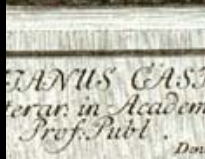 TIANUS CAST
terar: in Academ
Prof: Publ.